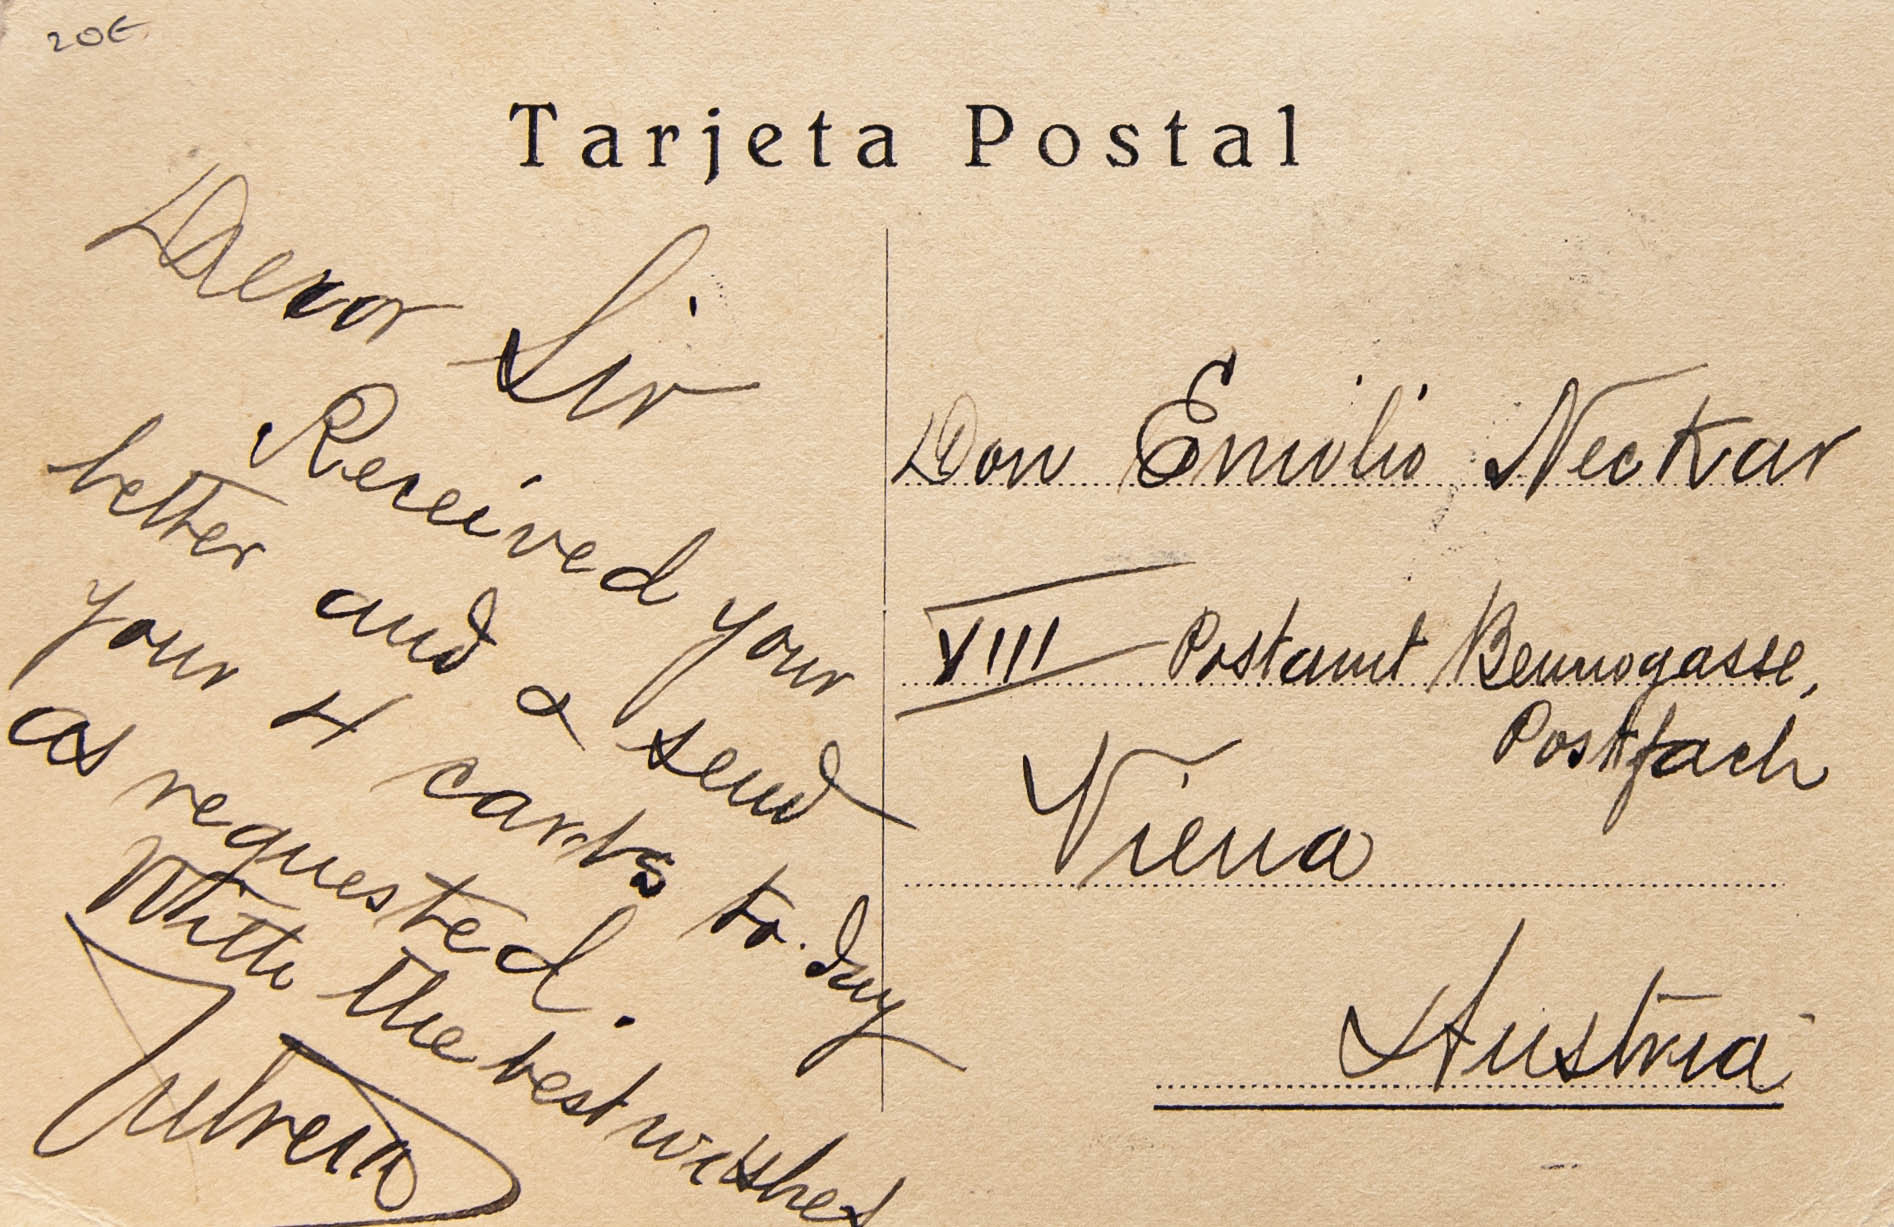 20€
Tarjeta Postal
Dear Sir
Received your
letter and & send
your 4 cards to-day
as requested.
With the best wishes
Don Emilio Neckar
VIII Postamt Bennogasse,
Postfach
Viena
Austria